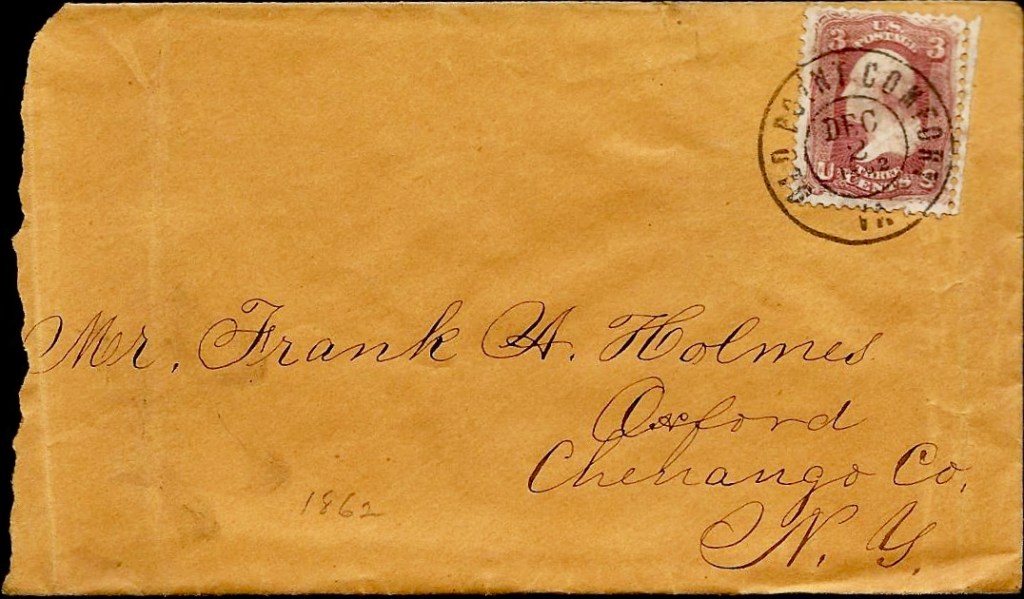 3 U.S. 3
POSTAGE
U THREE S
CENTS
OLD POINT COMFORT
DEC
2
VA
Mr. Frank A. Holmes
Oxford
Chenango Co.
N. Y.
1862